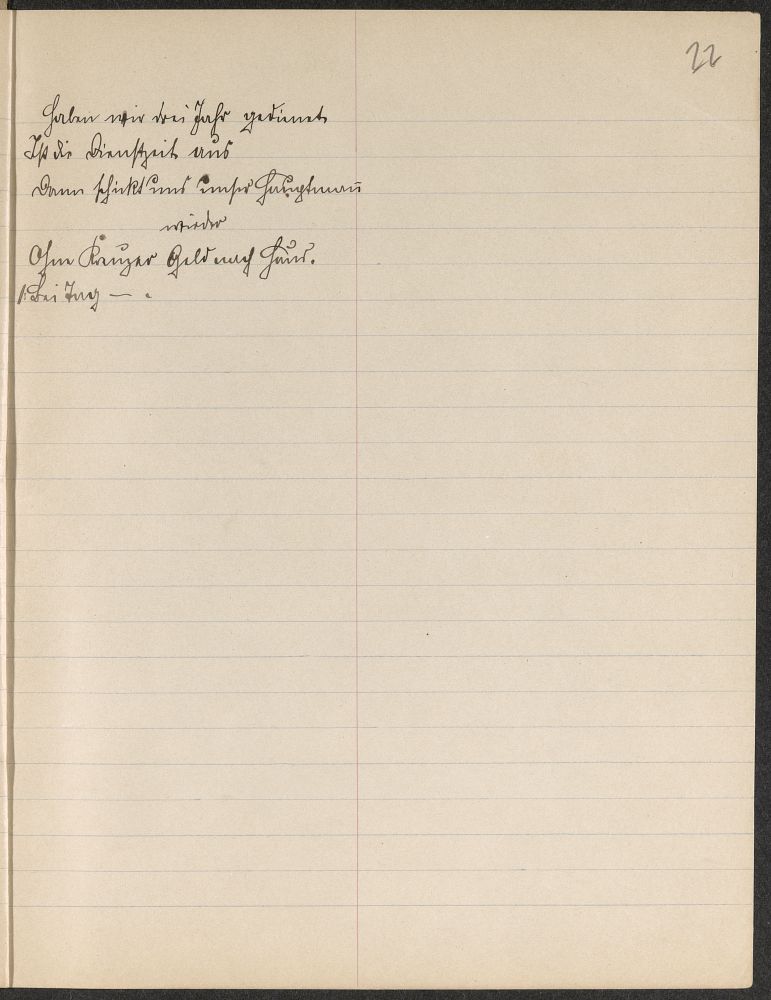 22
Haben wir drei Jahr gedienet
Ist die Dienstzeit aus
Dann schickt uns unser Hauptman̄
wieder
Ohne Kreuzer Geld nach Haus.
/: Bei Tag — .